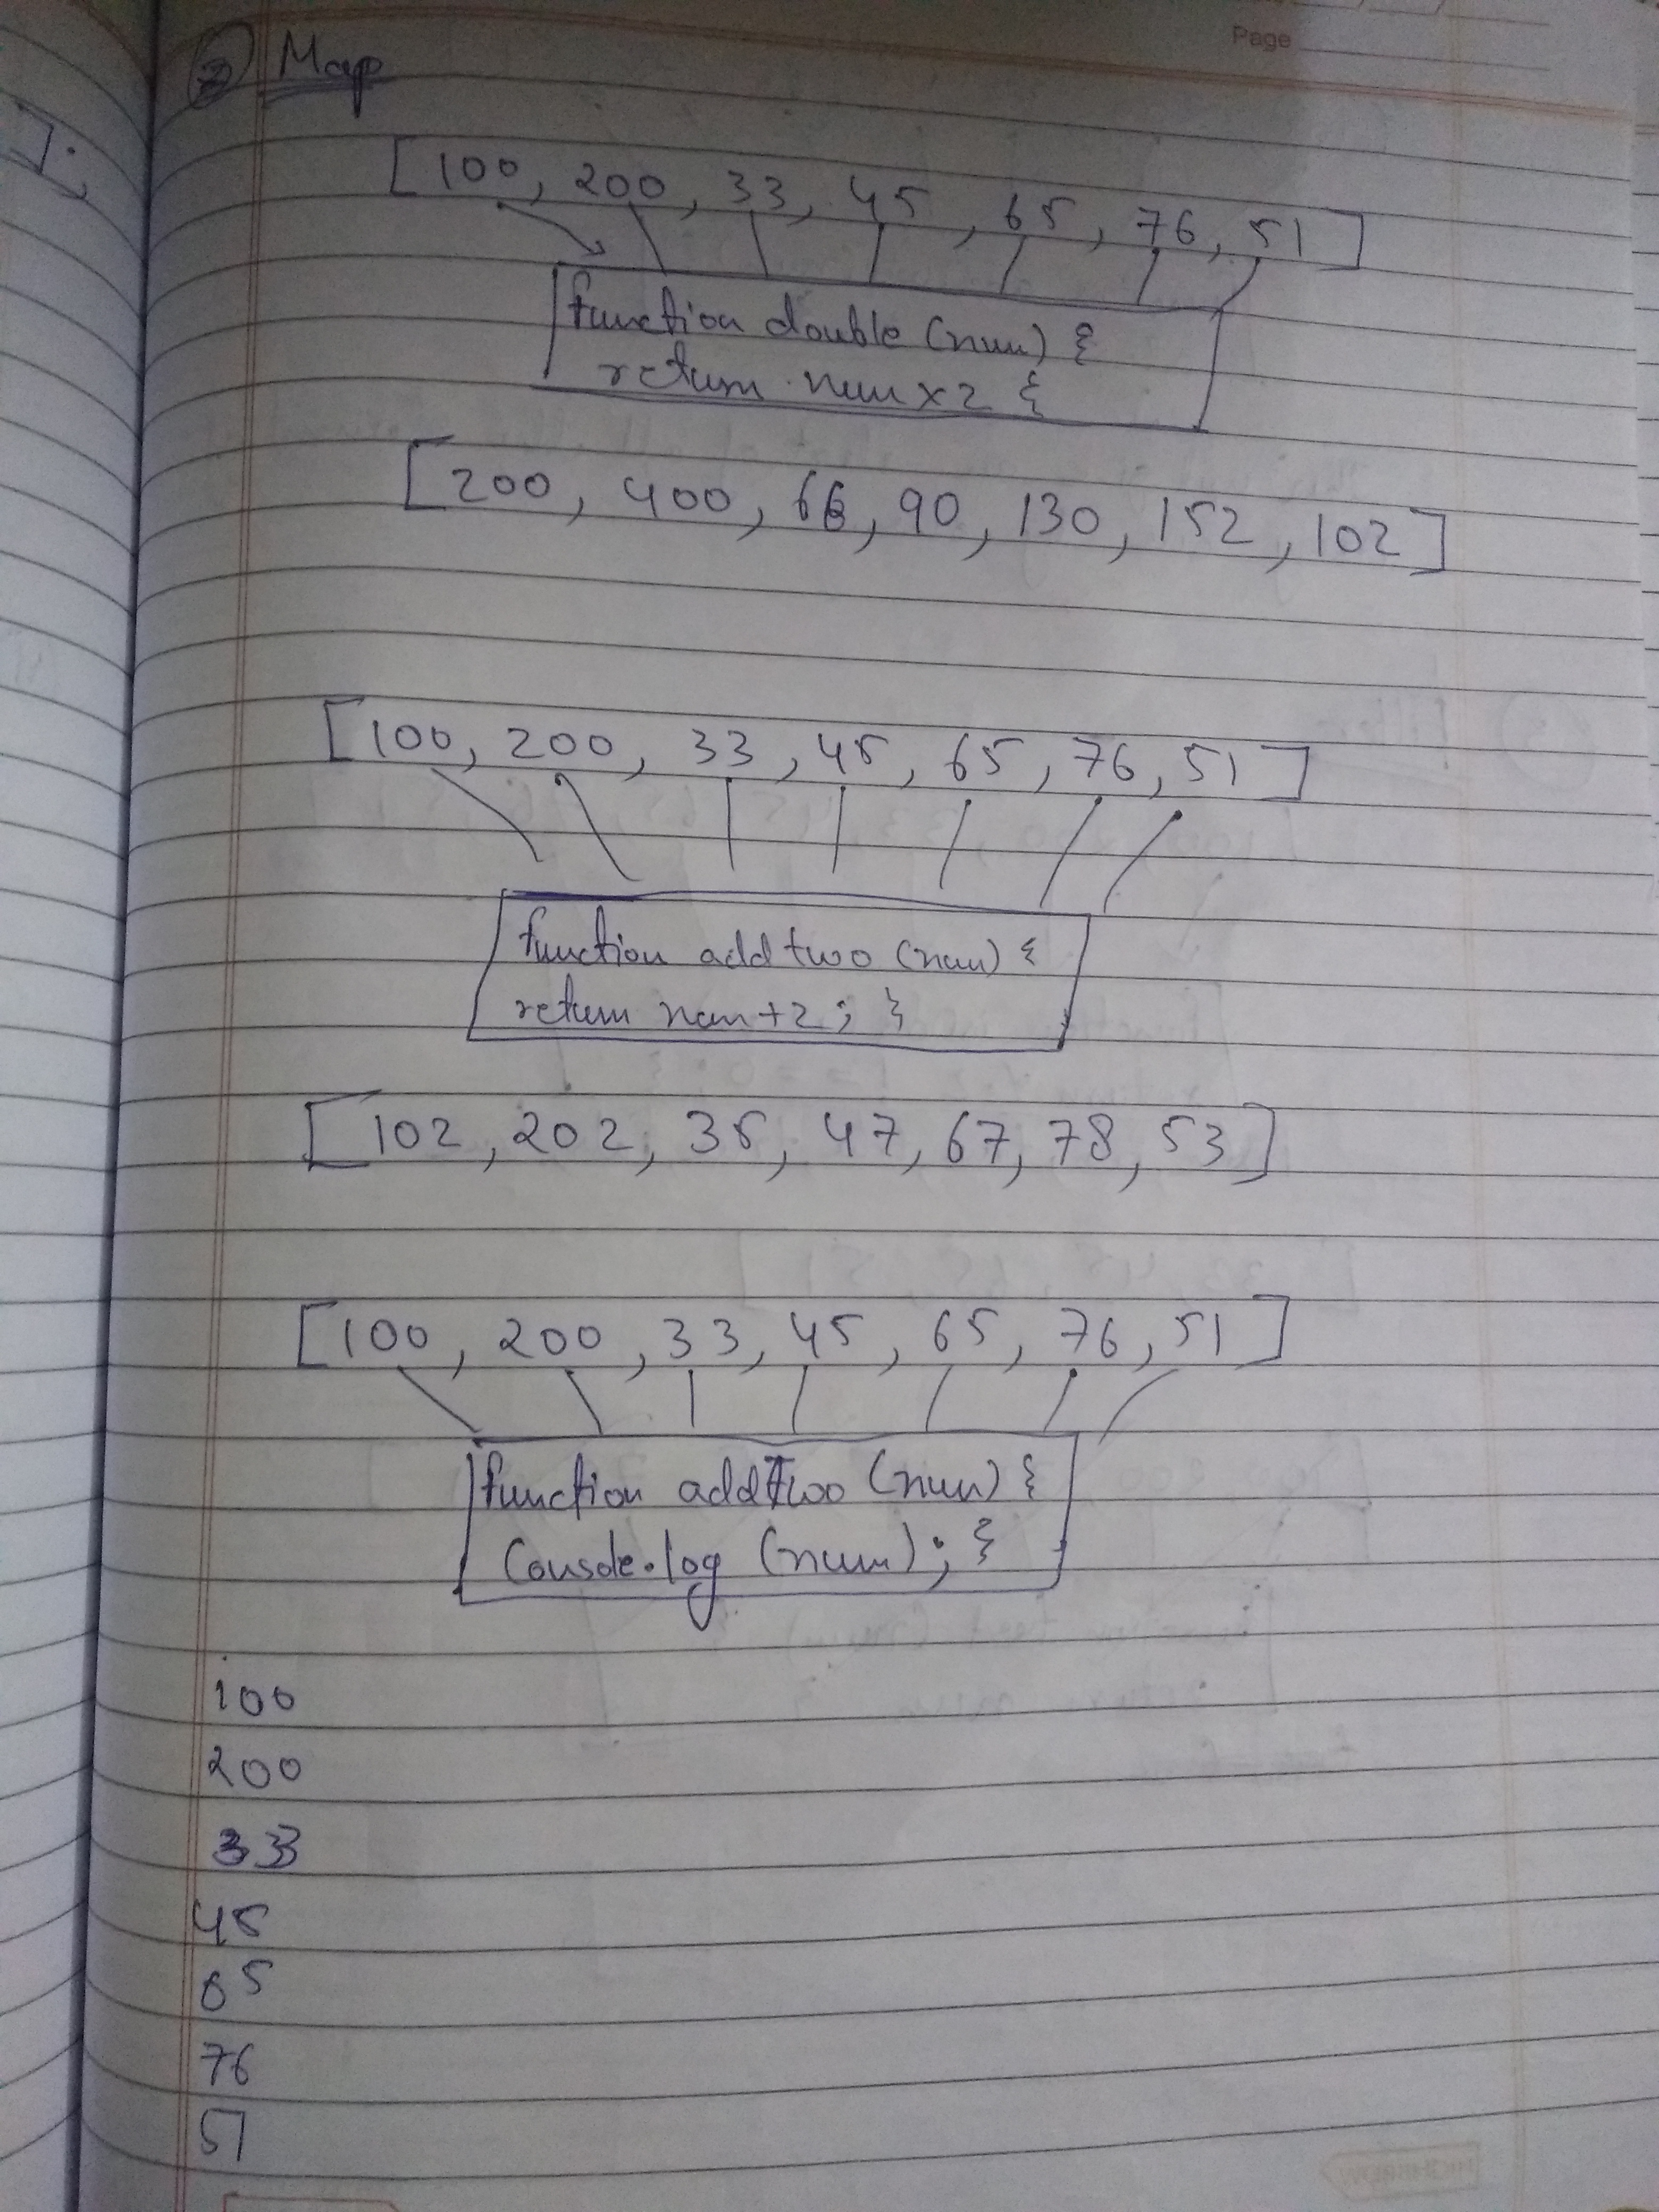 Page
② Map
[100, 200, 33, 45, 65, 76, 51]
function double (num) {
return num x 2 }
[200, 400, 66, 90, 130, 152, 102]
[100, 200, 33, 45, 65, 76, 51]
function add two (num) {
return num + 2 ; }
[102, 202, 35, 47, 67, 78, 53]
[100, 200, 33, 45, 65, 76, 51]
function addTwo (num) {
Console.log (num) ; }
100
200
33
45
65
76
51